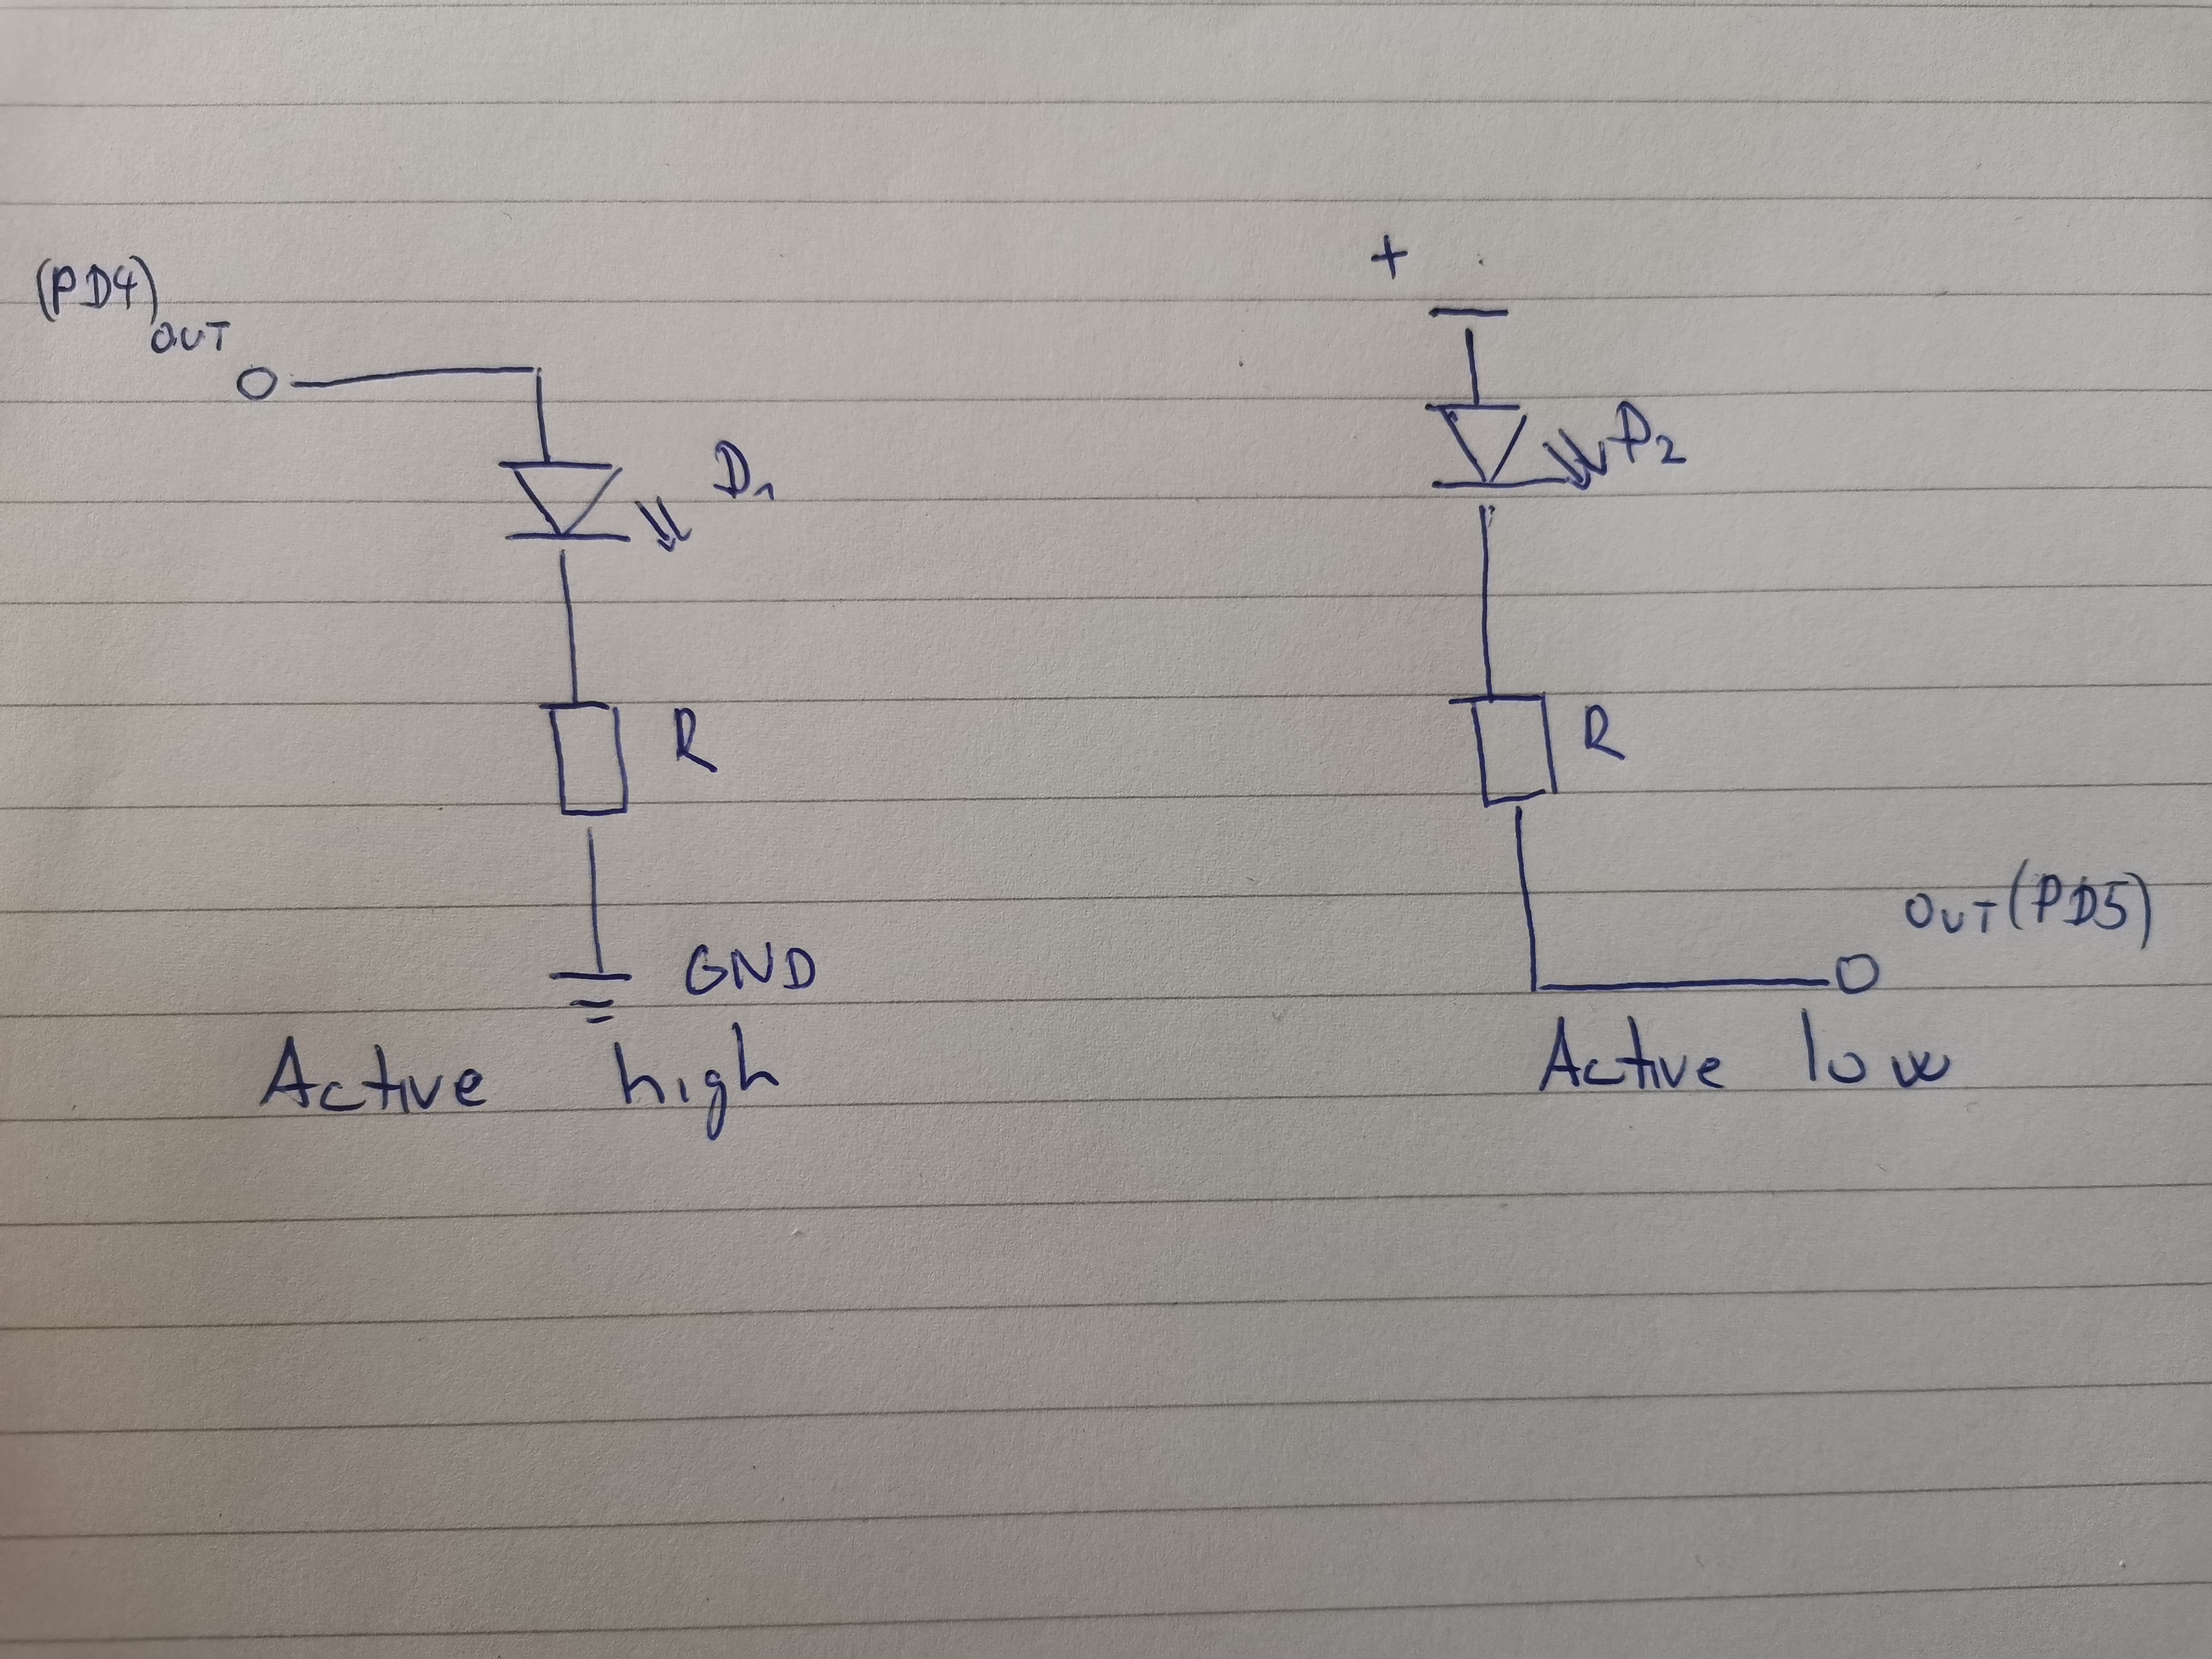 (PD4)
OUT
D1
R
GND
Active high
+
D2
R
OUT (PD5)
Active low